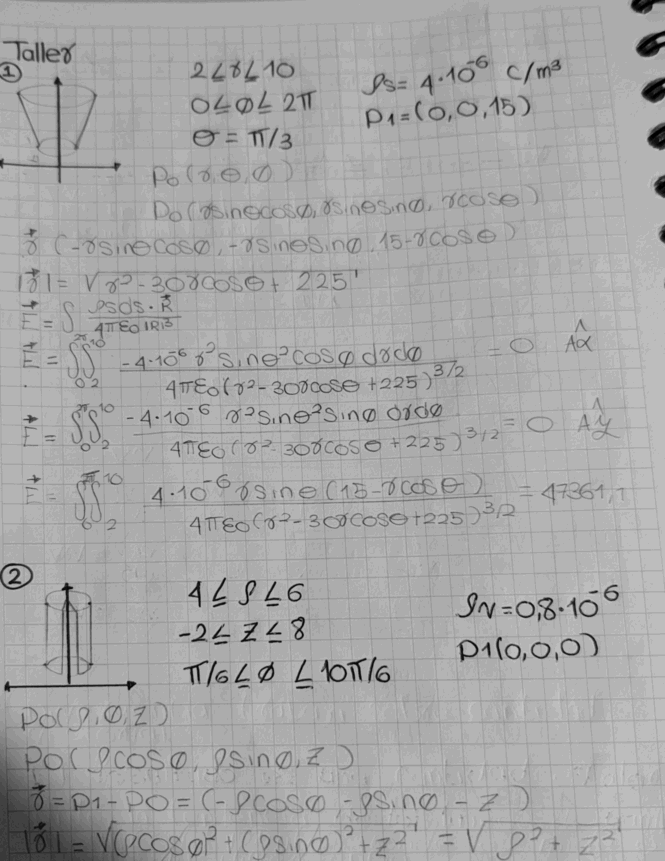 Taller
① 2∠r∠10 ρs= 4·10⁻⁶ C/m³
0∠∅∠ 2π P1=(0,0,15)
θ = π/3
Po(r,θ,∅)
Po(rsinθcos∅, rsinθsin∅, rcosθ)
r⃗ (-rsinθcos∅, -rsinθsin∅, 15-rcosθ)
|r⃗| = √r²-30rcosθ+ 225
E⃗ = ∫ ρsds·R⃗ / 4πε0|R|³
E⃗ = ∫₀^2π ∫₂^10 -4·10⁻⁶ r² sinθ² cos∅ drd∅ / 4πε0(r²-30rcosθ+225)^3/2 = 0 Âx
E⃗ = ∫₀ ∫₂^10 -4·10⁻⁶ r²sinθ²sin∅ drd∅ / 4πε0(r²-30rcosθ+225)^3/2 = 0 Ây
E⃗ = ∫₀ ∫₂^10 4·10⁻⁶ rsinθ(15-rcosθ) / 4πε0(r²-30rcosθ+225)^3/2 = 47361,1
② 4 ≤ ρ ≤ 6 ρv=0,8·10⁻⁶
-2 ≤ Z ≤ 8 P1(0,0,0)
π/6 ≤ ∅ ≤ 10π/6
PO(ρ,∅,Z)
PO(ρcos∅, ρsin∅, Z)
r⃗ = P1-PO = (-ρcos∅, -ρsin∅, -Z)
|r⃗| = √(ρcos∅)²+(ρsin∅)²+Z² = √ρ²+Z²